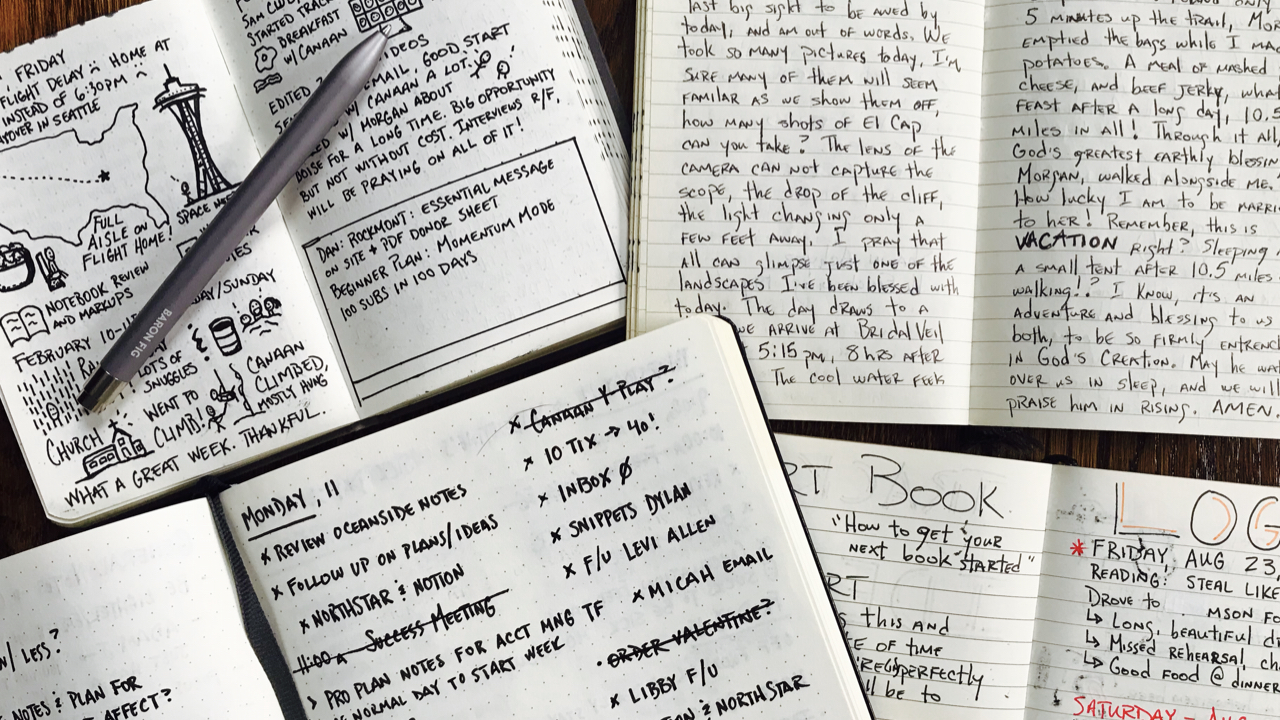 FRIDAY
FLIGHT DELAY HOME AT
INSTEAD OF 6:30PM
IN SEATTLE
SPACE
FULL
AISLE ON
FLIGHT HOME!
NOTEBOOK REVIEW
AND MARKUPS
/SUNDAY
FEBRUARY 10-
LOTS OF
SNUGGLES
WENT TO
CLIMB!
CANAAN
CLIMBED,
MOSTLY HUNG
CHURCH
WHAT A GREAT WEEK. THANKFUL.
BARON FIG
STARTED
BREAKFAST
W/ CANAAN
EDITED
EMAIL. GOOD START
W/ CANAAN A LOT.
W/ MORGAN ABOUT
FOR A LONG TIME. BIG OPPORTUNITY
BUT NOT WITHOUT COST. INTERVIEWS R/F.
WILL BE PRAYING ON ALL OF IT!
DAN: ROCKMONT: ESSENTIAL MESSAGE
ON SITE + PDF DONOR SHEET
BEGINNER PLAN: MOMENTUM MODE
100 SUBS IN 100 DAYS
last big sight to be awed by
today, and am out of words. We
took so many pictures today, I'm
sure many of them will seem
familar as we show them off,
how many shots of El Cap
can you take? The lens of the
camera can not capture the
scope, the drop of the cliff,
the light changing only a
few feet away. I pray that
all can glimpse just one of the
landscapes I've been blessed with
today. The day draws to a
we arrive at Bridal Veil
5:15 pm, 8 hrs after
The cool water feek
5 minutes up the trail,
emptied the bags while I
potatoes. A meal of mashed
cheese, and beef jerky,
feast after a long day, 10.5
miles in all! Through it all
God's greatest earthly
Morgan, walked alongside me.
How lucky I am to be
to her! Remember, this is
VACATION right? Sleeping
a small tent after 10.5 miles
walking!? I know, it's an
adventure and blessing to us
both, to be so firmly
in God's creation. May he
over us in sleep, and we will
praise him in rising. Amen.
W/ LESS?
NOTES & PLAN FOR
AFFECT?
MONDAY, 11
× REVIEW OCEANSIDE NOTES
× FOLLOW UP ON PLANS/IDEAS
× NORTHSTAR & NOTION
11:00A SUCCESS MEETING
> PRO PLAN NOTES FOR ACCT MNG TF
NORMAL DAY TO START WEEK
× CANAAN Y PLAY?
× 10 TIX → 40!
× INBOX Ø
× SNIPPETS DYLAN
× F/U LEVI ALLEN
× MICAH EMAIL
• ORDER VALENTINE?
× LIBBY F/U
& NORTHSTAR
Book
"How to get your
next book started"
this and
of time
perfectly
be to
LOG
* FRIDAY, AUG 23,
READING: STEAL LIKE
DROVE to
↳ Long, beautiful
↳ Missed rehearsal,
↳ Good food @ dinner
SATURDAY